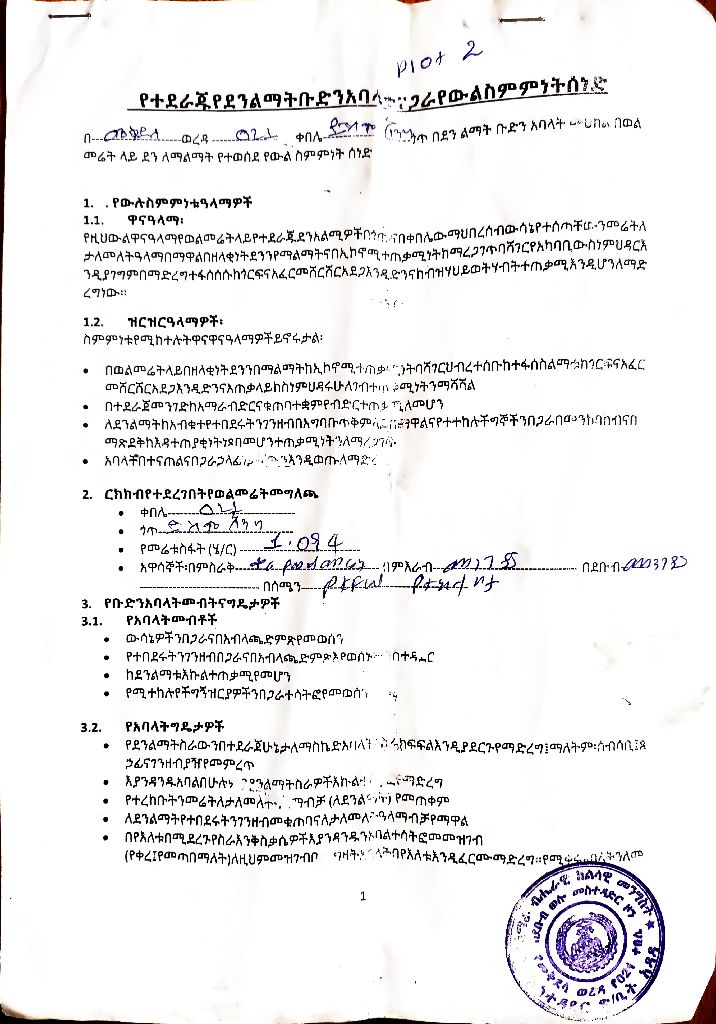 Plot 2
የተደራጁየደንልማትቡድንአባላ ጋራየውልስምምነትሰነድ
በ መቅደላ ወረዳ 021 ቀበሌ ጎጥ በደን ልማት ቡድን አባላት መሀከል በወል
መሬት ላይ ደን ለማልማት የተወሰደ የውል ስምምነት ሰነድ
1. . የውሉስምምነቱዓላማዎች
1.1. ዋናዓላማ፡
የዚህውልዋናዓላማየወልመሬትላይየተደራጁደንአልሚዎችበጎጥናበቀበሌውማህበረሰብውሳኔየተሰጣቸውንመሬትለ
ታለመለትዓላማበማዋልበዘላቂነትደንንየማልማትናበኢኮኖሚተጠቃሚነትከማረጋገጥባሻገርየአካባቢውስነምህዳርእ
ንዲያገግምበማድረግተፋሰሱከጎርፍናአፈርመሸርሸርአደጋእንዲድንናከብዝሃህይወትሃብትተጠቃሚእንዲሆንለማድ
ረግነው።
1.2. ዝርዝርዓላማዎች፡
ስምምነቱየሚከተሉትዋናዋናዓላማዎችይኖሩታል፡
• በወልመሬትላይበዘላቂነትደንንበማልማትከኢኮኖሚተጠቃሚነትባሻገርህብረተሰቡከተፋሰስልማቱከጎርፍናአፈር
መሸርሸርአደጋእንዲድንናአጠቃላይከስነምህዳሩሁለገብተጠቃሚነትንማሻሻል
• በተደራጀመንገድከአማራብድርናቁጠባተቋምየብድርተጠቃሚለመሆን
• ለደንልማትከአብቁተየተበደሩትንገንዘብበአግባቡጥቅም ዋልናየተተከሉችግኞችንበጋራበመንከባከብናበ
ማጽደቅከእዳተጠያቂነትነጻበመሆንተጠቃሚነትንለማረጋገጥ
• አባላቸበተናጠልናበጋራኃላፊ እንዲወጡለማድረ
2. ርክክብየተደረገበትየወልመሬትመግለጫ
• ቀበሌ 021
• ጎጥ
• የመሬቱስፋት (ሄ/ር) 1.094
• አዋሳኞች፡በምስራቅ በምእራብ መንገድ በደቡብ መንገድ
በሰሜን
3. የቡድንአባላትመብትናግዴታዎች
3.1. የአባላትመብቶች
• ውሳኔዎችንበጋራናበአብላጫድምጽየመወሰን
• የተበደሩትንገንዘብበጋራናበአብላጫድምጽእየወሰኑ በተዳደር
• ከደንልማቱእኩልተጠቃሚየመሆን
• የሚተከሉየችግኝዝርያዎችንበጋራተሳትፎየመወሰን
3.2. የአባላትግዴታዎች
• የደንልማትስራውንበተደራጀሁኔታለማስኬድአባላት ስራክፍፍልእንዲያደርጉየማድረግ፤ማለትም፡ሰብሳቢ፤ጸ
ኃፊናገንዘብያዥየመምረጥ
• እያንዳንዱአባልበሁሉም የደንልማትስራዎችእኩልተ የማድረግ
• የተረከቡትንመሬትለታለመለት ማብቻ (ለደንልማት) የመጠቀም
• ለደንልማትየተበደሩትንገንዘብመቁጠባናለታለመለትዓላማብቻየማዋል
• በየእለቱበሚደረጉየስራእንቅስቃሴዎችእያንዳንዱንአባልተሳትፎመመዝገብ
(የቀረ፤የመጣበማለት)ለዚህምመዝገብበ ባየእለቱእንዲፈርሙማድረግ።
1
ብሔራዊ ክልላዊ መንግስት
ደቡብ ወሎ መስተዳድር ዞን
የመቅደላ ወረዳ የ021 ቀበሌ